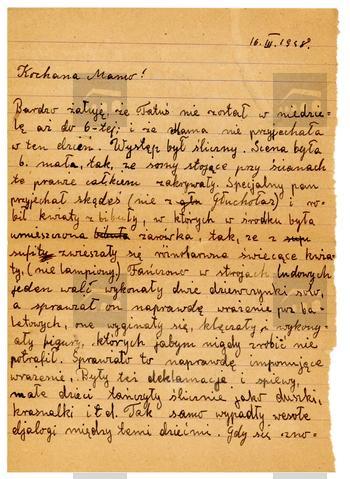 16. III. 1958.
Kochana Mamo!
Bardzo żałuję, że Tatuś nie został w niedzie-
lę aż do 6-tej; i że Mama nie przyjechała
w ten dzień. Występ był śliczny. Scena była
b. mała, tak, że sosny stojące przy ścianach
te prawie całkiem zakrywały. Specjalny pan
przyjechał skądeś (nie z Głuchołaz) i ro-
bił kwiaty z bibuły, w których w środku była
umieszczona żarówka, tak, że z
sufitu zwieszały się różnobarwne świecące kwia-
ty, (nie lampiony). Tańczono w strojach ludowych
jeden walc wykonały dwie dziewczynki solo,
a sprawiał on naprawdę wrażenie, bo ba-
letowych, one wyginały się, klęczały, wykony-
ały figury, których jabym nigdy zrobić nie
potrafił. Sprawiało to naprawdę imponujące
wrażenie. Były też deklamacje i śpiewy,
małe dzieci tańczyły ślicznie jako duszki,
krasnalki i t.d. Tak samo wypadły wesołe
djalogi między temi dziećmi. Gdy się zno-